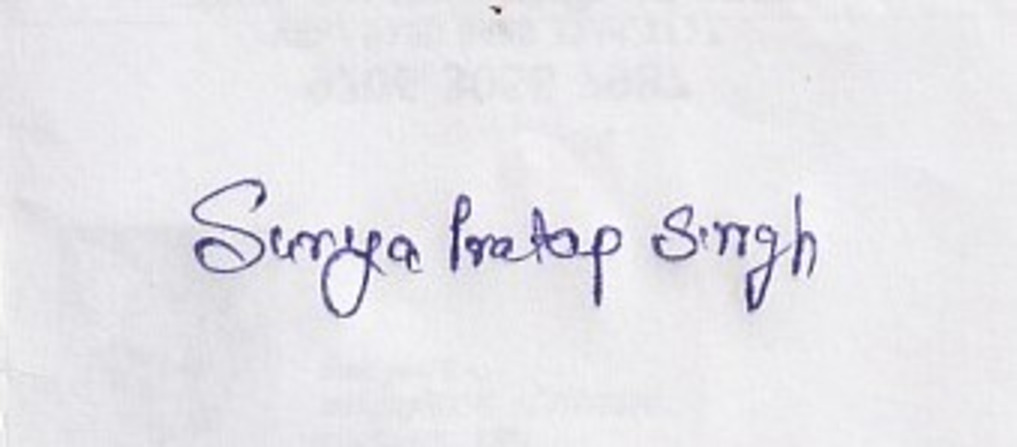 Surya Pratap Singh